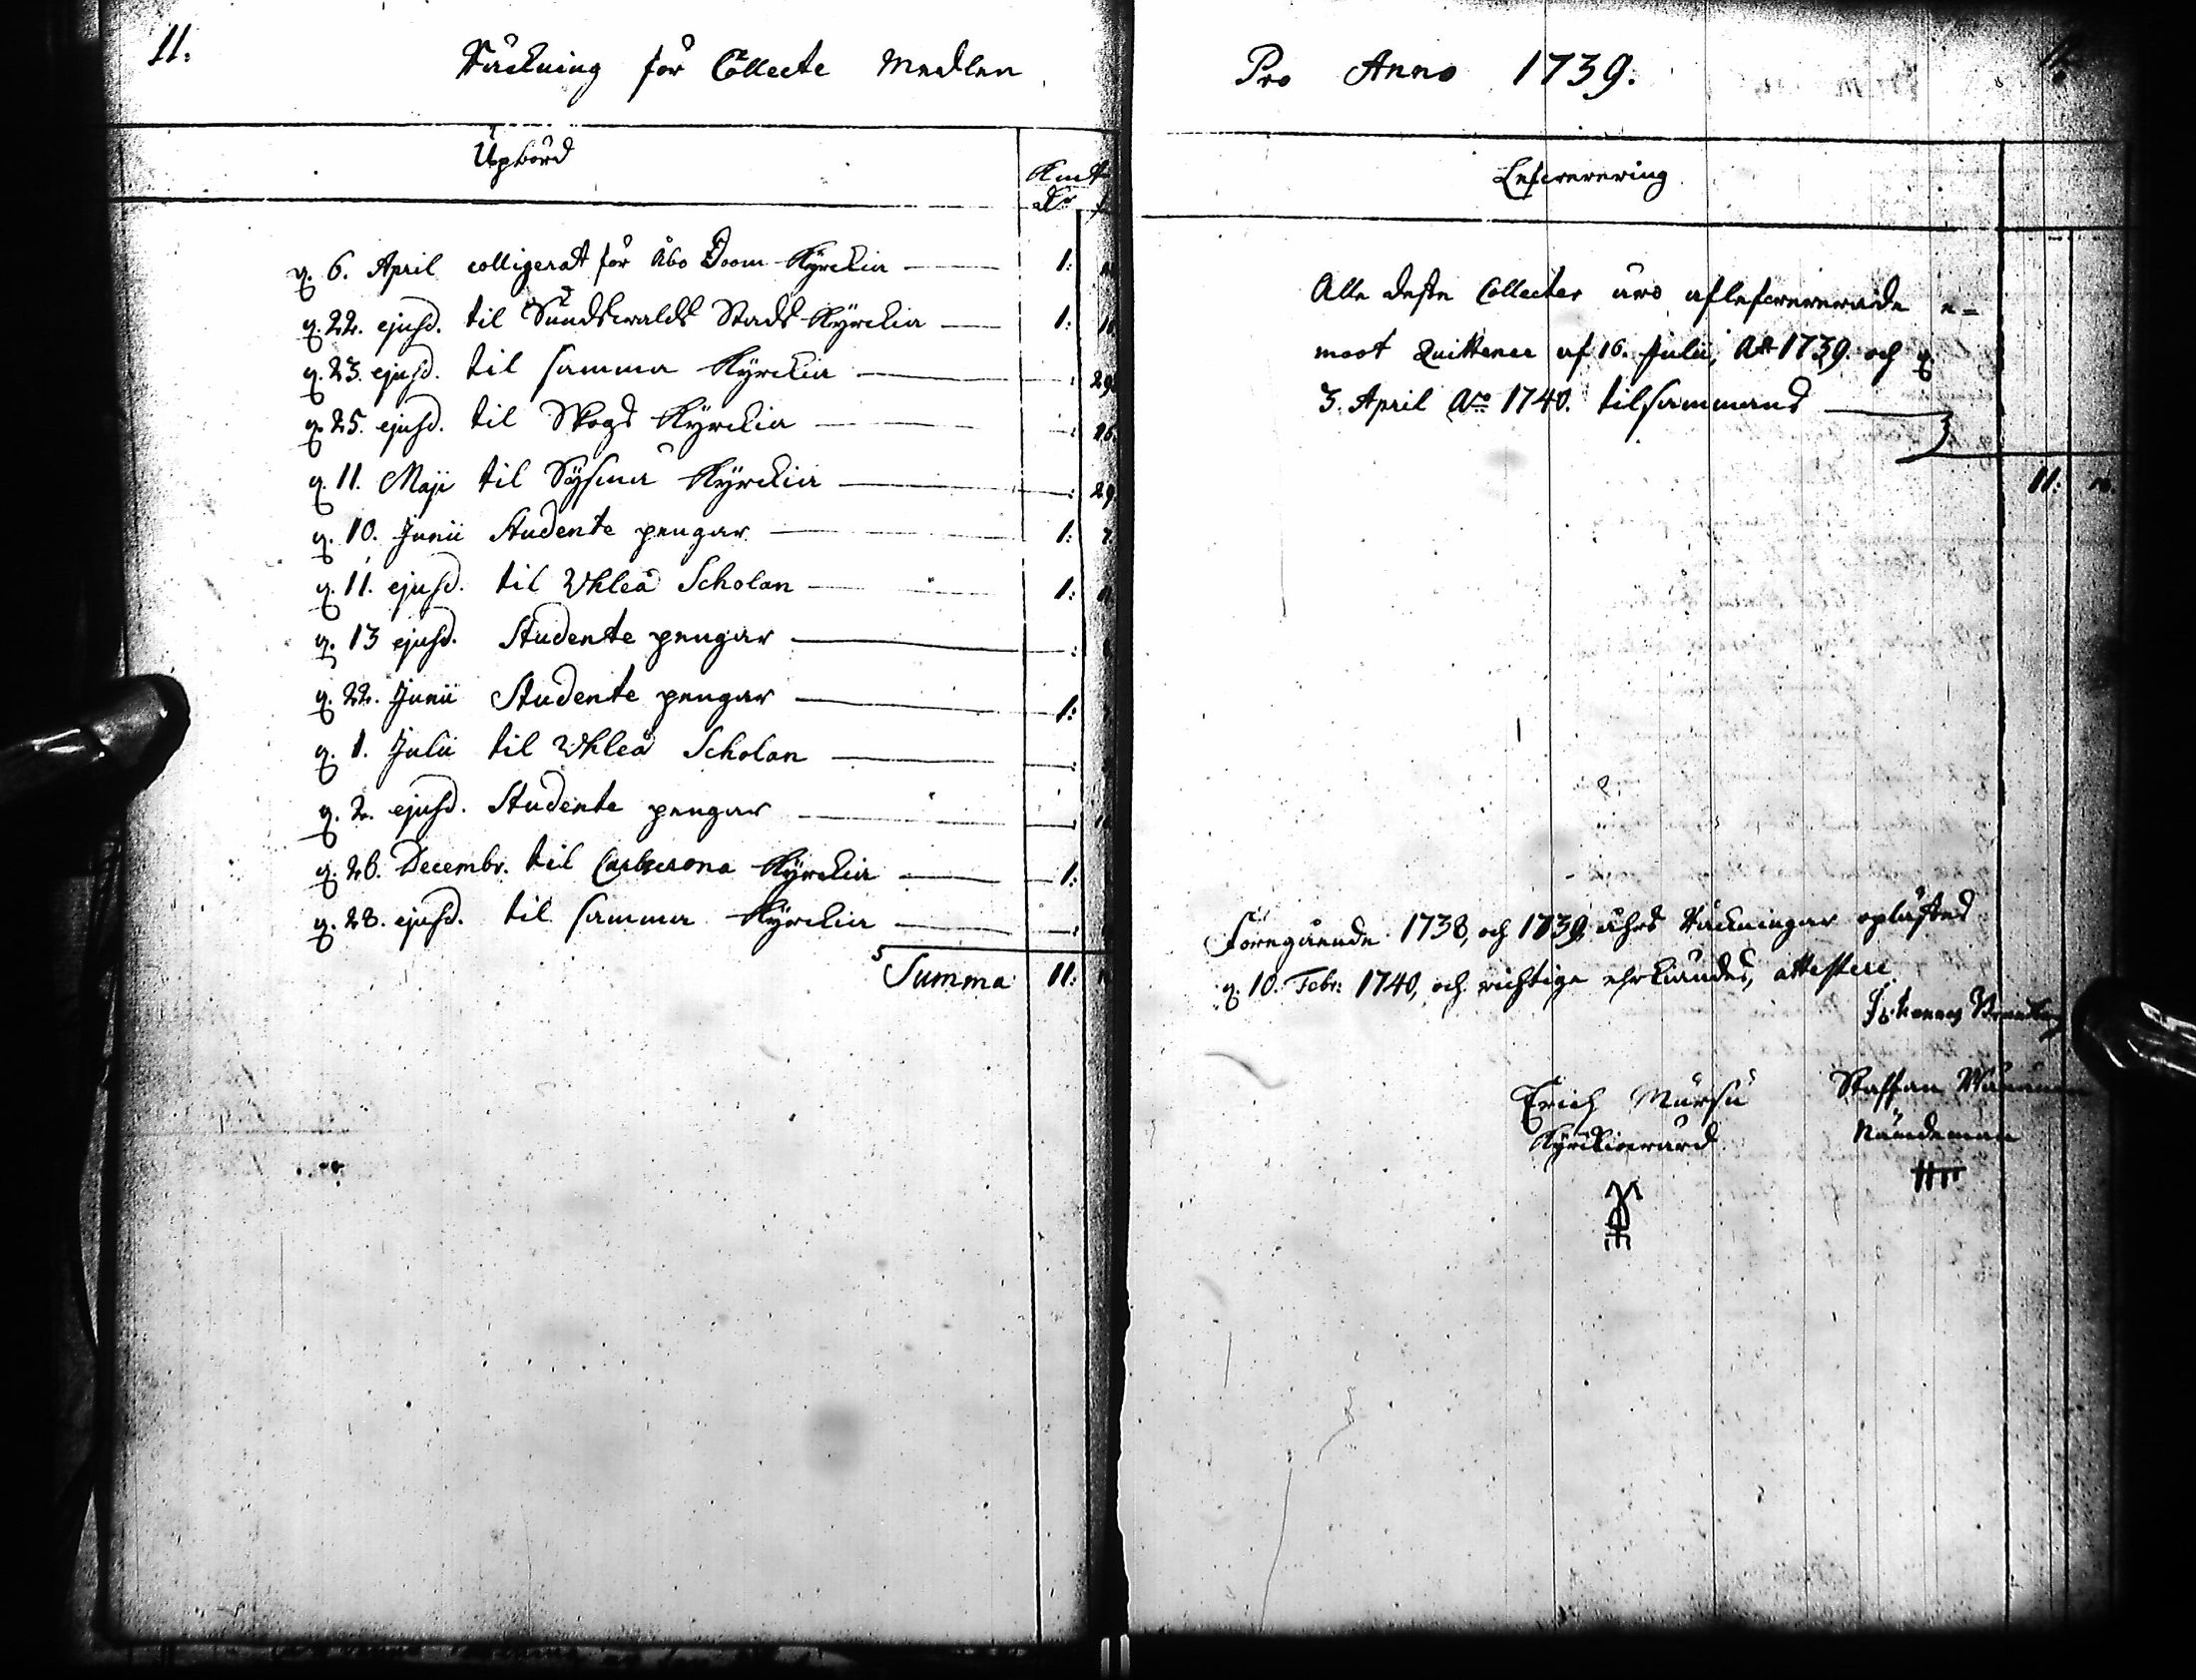 11.
Räckning för Collecte Medlen
Upbörd
Kmt
dr
q. 6. April colligerat för Åbo Doom Kyrckia 1:
q. 22. ejusd. til Sundswalds Stads Kyrckia 1:
q. 23. ejusd. til samma Kyrckia : 29
q. 25. ejusd. til Skogs Kyrckia : 16
q. 11. Maji til Sysmä Kyrckia : 29
q. 10. Junii Studente pengar 1: 7
q. 11. ejusd. til Uhleå Scholan 1:
q. 13 ejusd. Studente pengar :
q. 22. Junii Studente pengar 1:
q. 1. Julii til Uhleå Scholan :
q. 2. ejusd. Studente pengar :
q. 26. Decembr. til Carlscrona Kyrckia 1:
q. 28. ejusd. til samma Kyrckia :
Summa 11:
Pro Anno 1739.
Lefwerering
Alle desse Collecter äro aflefwererade e=
moot Quittencer af 16. Julii, Ao 1739. och q.
3. April Ao 1740. tilsammans
11:
Föregående 1738, och 1739 åhrs Räckningar oplästes
q. 10. Febr: 1740, och richtige ehrkändes, attestere
Johannes
Erich Mursu
Staffan
Kyrckiowärd
Nämdeman